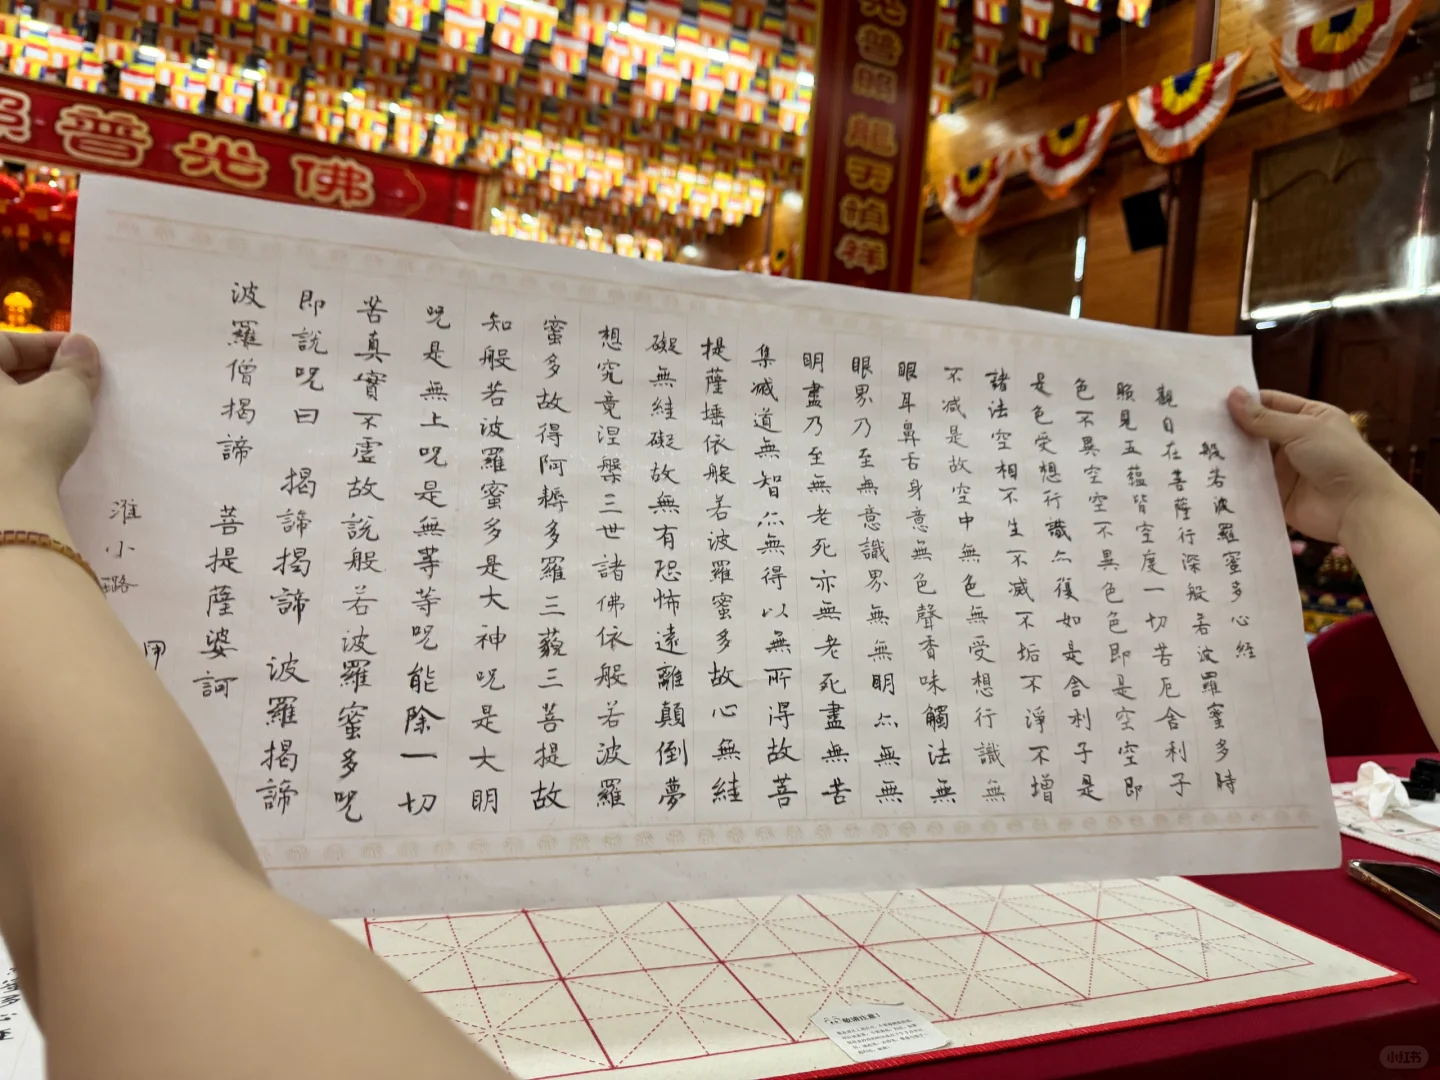 佛光普照
光普照 龍天禎祥
般若波羅蜜多心経
觀自在菩薩行深般若波羅蜜多時
照見五蘊皆空度一切苦厄舍利子
色不異空空不異色色即是空空即
是色受想行識亦復如是舍利子是
諸法空相不生不滅不垢不淨不增
不減是故空中無色無受想行識無
眼耳鼻舌身意無色聲香味觸法無
眼界乃至無意識界無無明亦無無
明盡乃至無老死亦無老死盡無苦
集滅道無智亦無得以無所得故菩
提薩埵依般若波羅蜜多故心無絓
礙無絓礙故無有恐怖遠離顛倒夢
想究竟涅槃三世諸佛依般若波羅
蜜多故得阿耨多羅三藐三菩提故
知般若波羅蜜多是大神咒是大明
咒是無上咒是無等等咒能除一切
苦真實不虛故說般若波羅蜜多咒
即說咒曰 揭諦揭諦 波羅揭諦
波羅僧揭諦 菩提薩婆訶
淮小璐
小红书